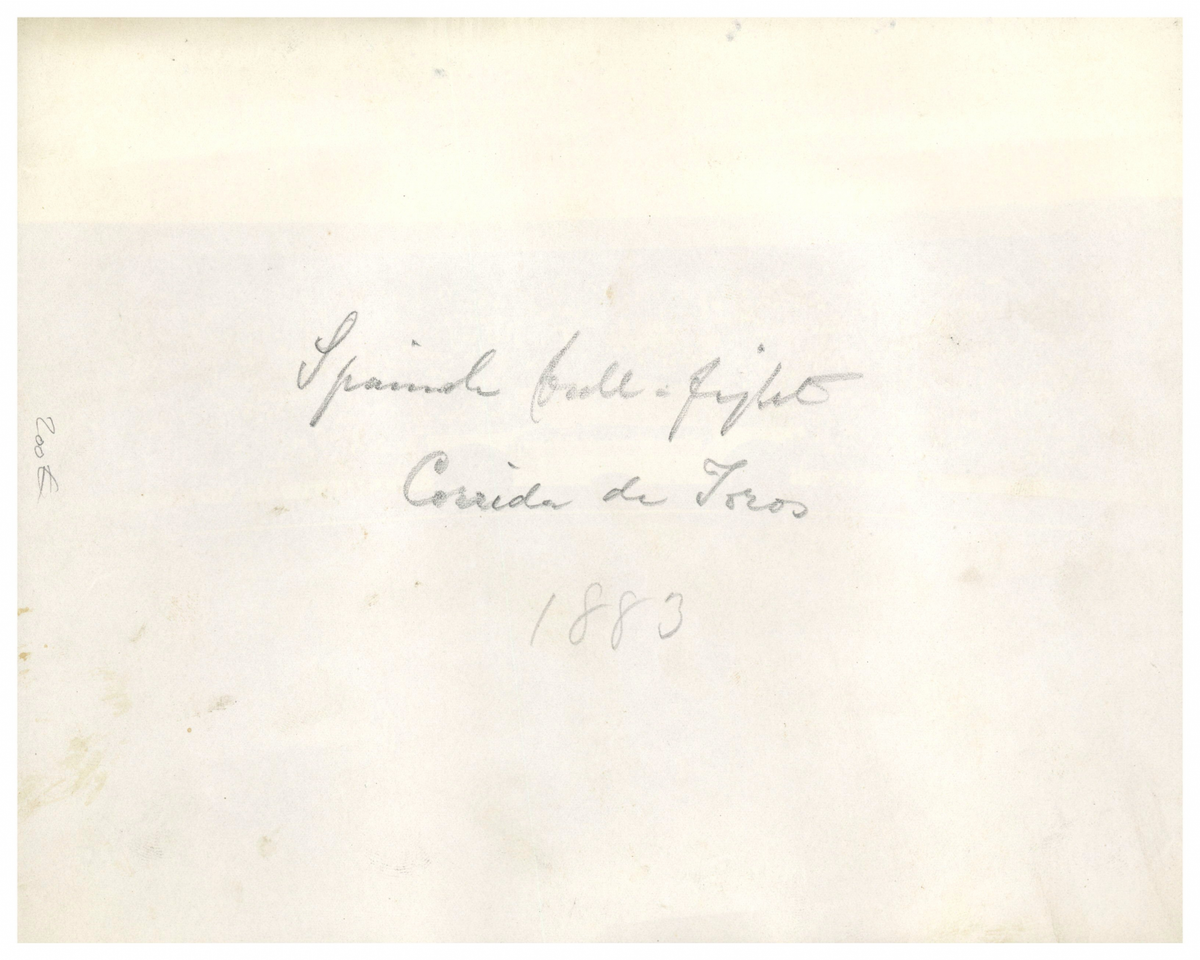 Spanish bull-fight
Corrida de Toros
1883
200 €